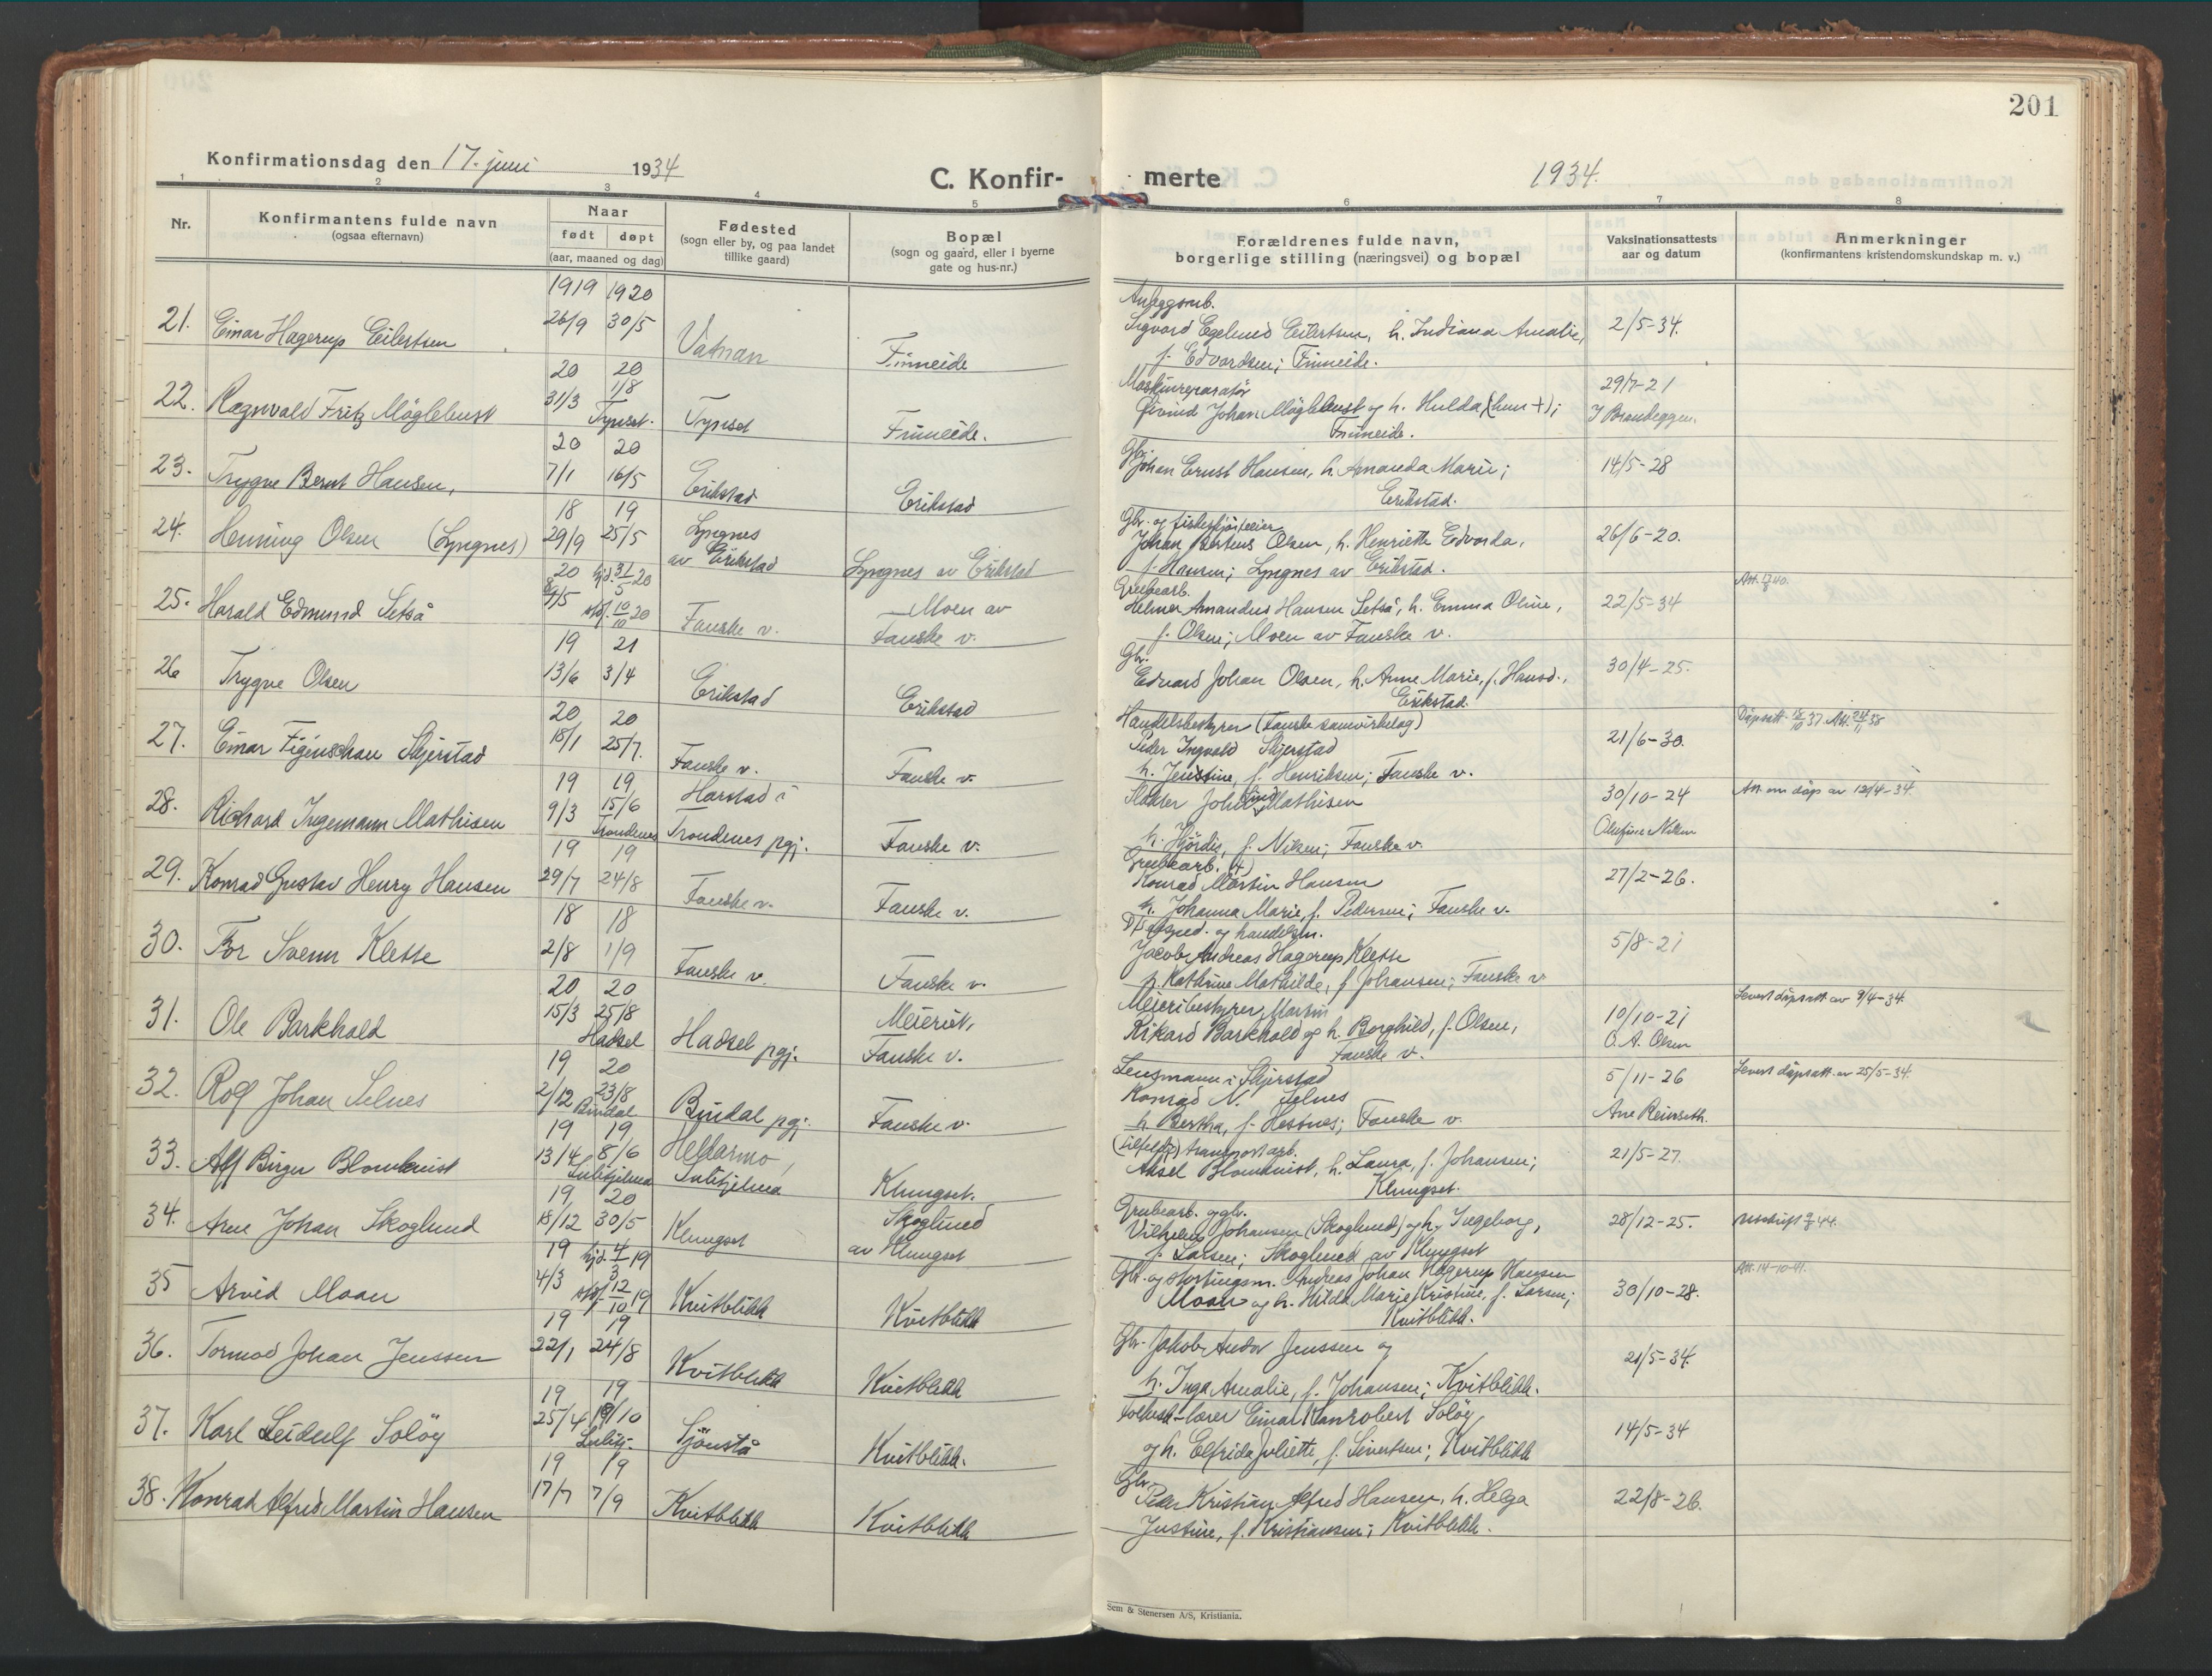 201
Konfirmationsdag den 17. juni 1934
C. Konfir-
merte
1934.
1 2 3 4 5 6 7 8
Nr.
Konfirmantens fulde navn
(ogsaa efternavn)
Naar
født døpt
(aar, maaned og dag)
Fødested
(sogn eller by, og paa landet
tillike gaard)
Bopæl
(sogn og gaard, eller i byerne
gate og hus-nr.)
Forældrenes fulde navn,
borgerlige stilling (næringsvei) og bopæl
Vaksinationsattests
aar og datum
Anmerkninger
(konfirmantens kristendomskundskap m. v.)
1919 1920
21. Einar Hagerup Eilertsen 26/9 30/5 Vatnan Finneide
Anleggsarb.
Sigvard Egelund Eilertsen, h. Indiana Amalie, 2/5-34.
f. Edvardsen; Finneide.
20 20
22. Ragnvald Fritz Möglebust 31/3 1/8 Tynset. Tynset Finneide.
Maskinreparatör
Öivind Johan Möglebust og h. Hulda, (hun +); 29/7-21
Finneide. J Brandeggen.
20 20
23. Trygve Bernt Hansen, 7/1 16/5 Erikstad Erikstad
Gbr.
Johan Ernst Hansen, h. Amanda Marie; 14/5-28
Erikstad.
18 19
24. Henning Olsen (Lyngnes) 29/9 25/5 Lyngnes
av Erikstad Lyngnes av Erikstad
Gbr. og
Johan Olsen, h. Henriette Edvarda, 26/6-20.
f. Hansen; Lyngnes av Erikstad.
20 hjd. 31/5 20
25. Harald Edmund Setså /5 stdf. 10/10 20 Fauske v. Moen av
Fauske v.
Grubearb.
Helmer Amandus Hansen Setså, h. Emma Oline, 22/5-34
f. Olsen; Moen av Fauske v.
19 21
26 Trygve Olsen 13/6 3/4 Erikstad Erikstad
Gbr.
Edvard Johan Olsen, h. Anne Marie, f. Hansd., 30/4-25.
Erikstad
20 20
27. Einar Figenschau Skjerstad 18/1 25/7. Fauske v. Fauske v.
Handelsbestyrer (Fauske samvirkelag)
Peder Ingvald Skjerstad 21/6-30.
h. Jensine, f. Henriksen; Fauske v.
19 19
28. Richard Ingemann Mathisen 9/3 15/6 Trondenes Harstad i
Trondenes pgj. Fauske v.
Slakter Mathisen 30/10-24 Att. om dåp av 12/4-34.
h. Hjördis, f. Nilsen; Fauske v. Olufine Nilsen
19 19
29. Konrad Gustav Henry Hansen 29/7 24/8 Fauske v. Fauske v.
Grubearb. (+)
Konrad Martin Hansen 27/2-26.
h. Johanna Marie, f. Pedersen; Fauske v.
18 18
30. Tor Svenn Klette 2/8 1/9 Fauske v. Fauske v.
D/S eksped. og handelsm.
Jacob Andreas Hagerup Klette 5/8-21
h. Kathrine Mathilde, f. Johansen; Fauske v
20 20
31. Ole Barkhald 15/3 25/8 Hadsel Hadsel pgj. Meieriet,
Fauske v.
Meieribestyrer Martin
Rikard Barkhald og h. Borghild, f. Olsen, 10/10-21 Levert dåpsatt. av 9/4-34.
Fauske v. O. A. Olsen
19 20
32. Rolf Johan Selnes 2/12 23/8 Bindal Bindal pgj. Fauske v.
Lensmann i Skjerstad
Konrad N. Selnes 5/11-26 Levert dåpsatt. av 25/5-34.
h. Bertha, f. Hestnes; Fauske v. Ane Reinseth.
19 19
33. Alf Birger Blomkvist 13/4 8/6 Sulitjelma Hellarmo,
Sulitjelma Klungset.
transportarb.
Aksel Blomkvist, h. Laura, f. Johansen; 21/5-27.
Klungset.
19 20
34. Arne Johan Skoglund 18/12 30/5 Klungset Skoglund
av Klungset
Grubearb. og gbr.
Vilhelm Johansen (Skoglund) og h. Ingeborg, 28/12-25.
f. Larsen; Skoglund av Klungset
19 hjd. 4/3 19
35 Arvid Moan 4/3 stdf. 12/10 19 Kvitblikk Kvitblikk
Gbr. og stortingsm. Andreas Johan Hagerup Hansen Att. 14-10-41.
Moan og h. Hilda Marie Kristine, f. Larsen; 30/10-28.
Kvitblikk.
19 19
36. Tormod Johan Jenssen 22/1 24/8 Kvitblikk Kvitblikk
Gbr. Jakob Andor Jenssen og 21/5-34.
h. Inga Amalie, f. Johansen; Kvitblikk.
19 19
37. Karl Leidulf Solöy 25/4 19/10 Sulitj. Sjönstå Kvitblikk.
Folkesk.-lærer Einar Kanrobert Solöy 14/5-34
og h. Elfrida Juliette, f. Sivertsen; Kvitblikk
19 19
38. Konrad Alfred Martin Hansen 17/7 7/9 Kvitblikk Kvitblikk
Gbr.
Peder Kristian Alfred Hansen, h. Helga 22/8-26.
Justine, f. Kristiansen; Kvitblikk.
Sem & Stenersen A/S, Kristiania.